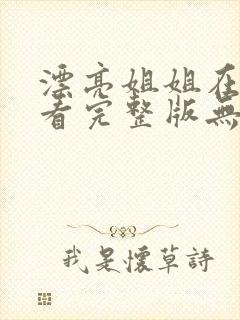 漂亮姐姐在
看完整版無
我是懷草詩